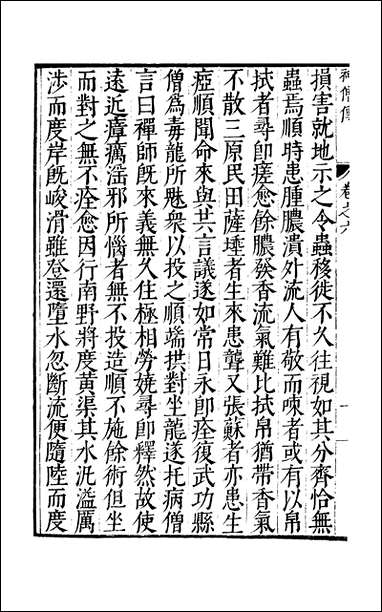 神僧傳
卷之六
損害就地示之令蟲移徙不久往視如其分齊恰無
蟲焉順時患腫膿潰外流人有敬而㖨者或有以帛
拭者尋即瘥愈餘膿發香流氣難比拭帛猶帶香氣
不散三原民田薩埵者生來患聾又張蘇者亦患生
瘂順聞命來與共言議遂如常日永即痊復武功縣
僧為毒龍所魅衆以投之順端拱對坐龍遂托病僧
言曰禪師旣來義無久住極相勞嬈尋即釋然故使
遠近瘴癘淫邪所惱者無不投造順不施餘術但坐
而對之無不痊愈因行南野將度黃渠其水汎溢厲
涉而度岸旣峻滑雖登還墮水忽斷流便隨陸而度